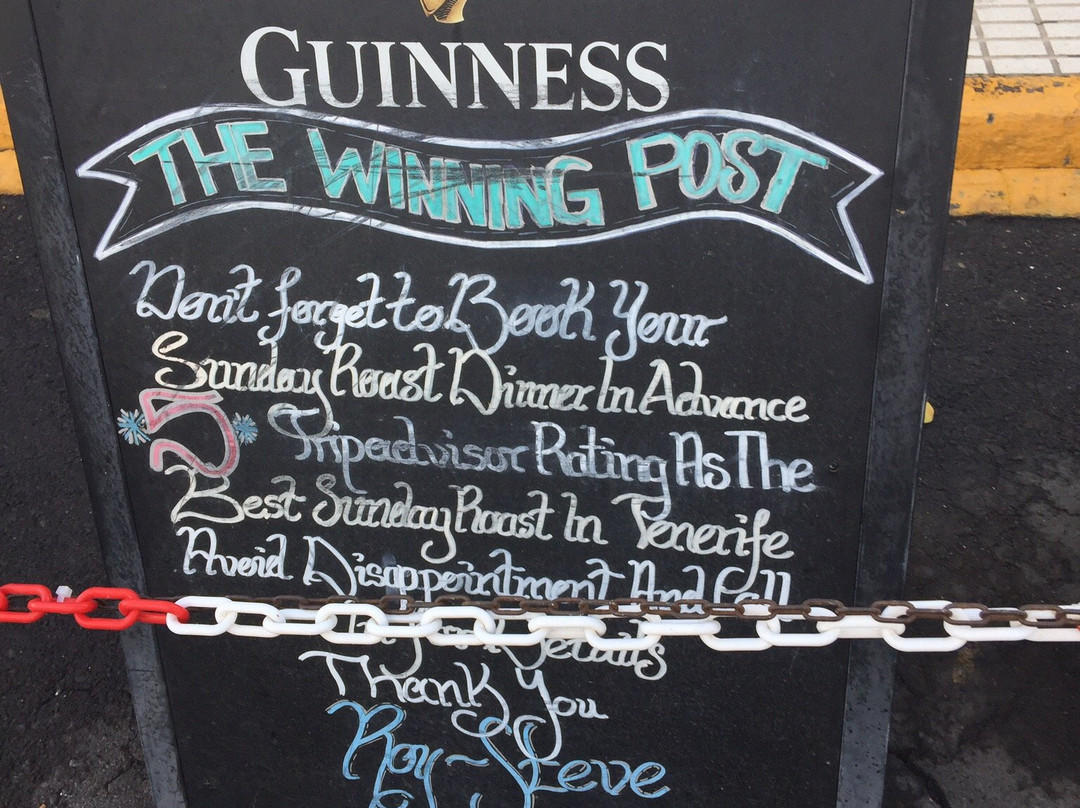 GUINNESS
THE WINNING POST
Don't forget to Book Your
Sunday Roast Dinner In Advance
5 Tripadvisor Rating As The
Best Sunday Roast In Tenerife
Avoid Disappointment And Call
Details
Thank You
Roy ~ Steve